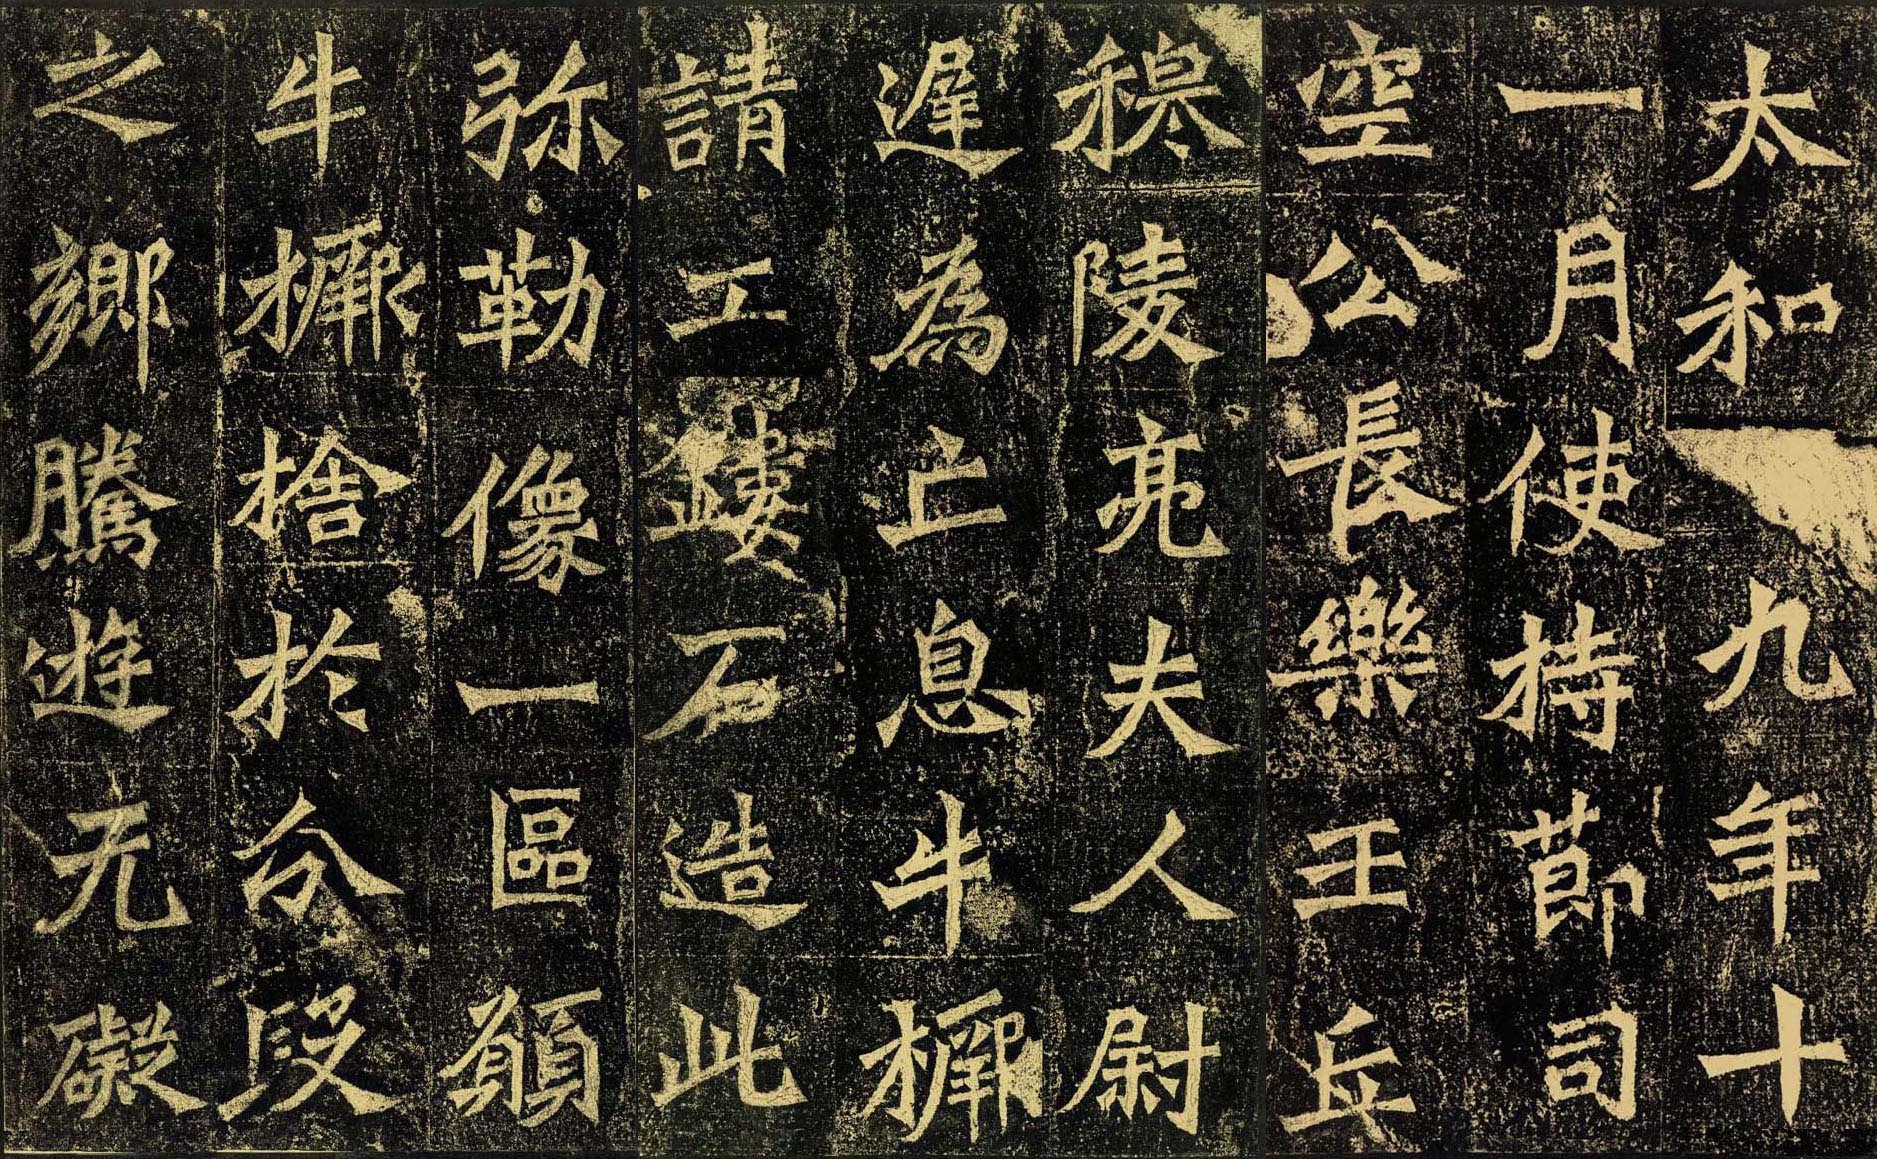 太和九年十
一月使持節司
空公長樂王丘
穆陵亮夫人尉
遲為亡息牛橛
請工鏤石造此
弥勒像一區願
牛橛捨於分段
之鄉騰遊无礙